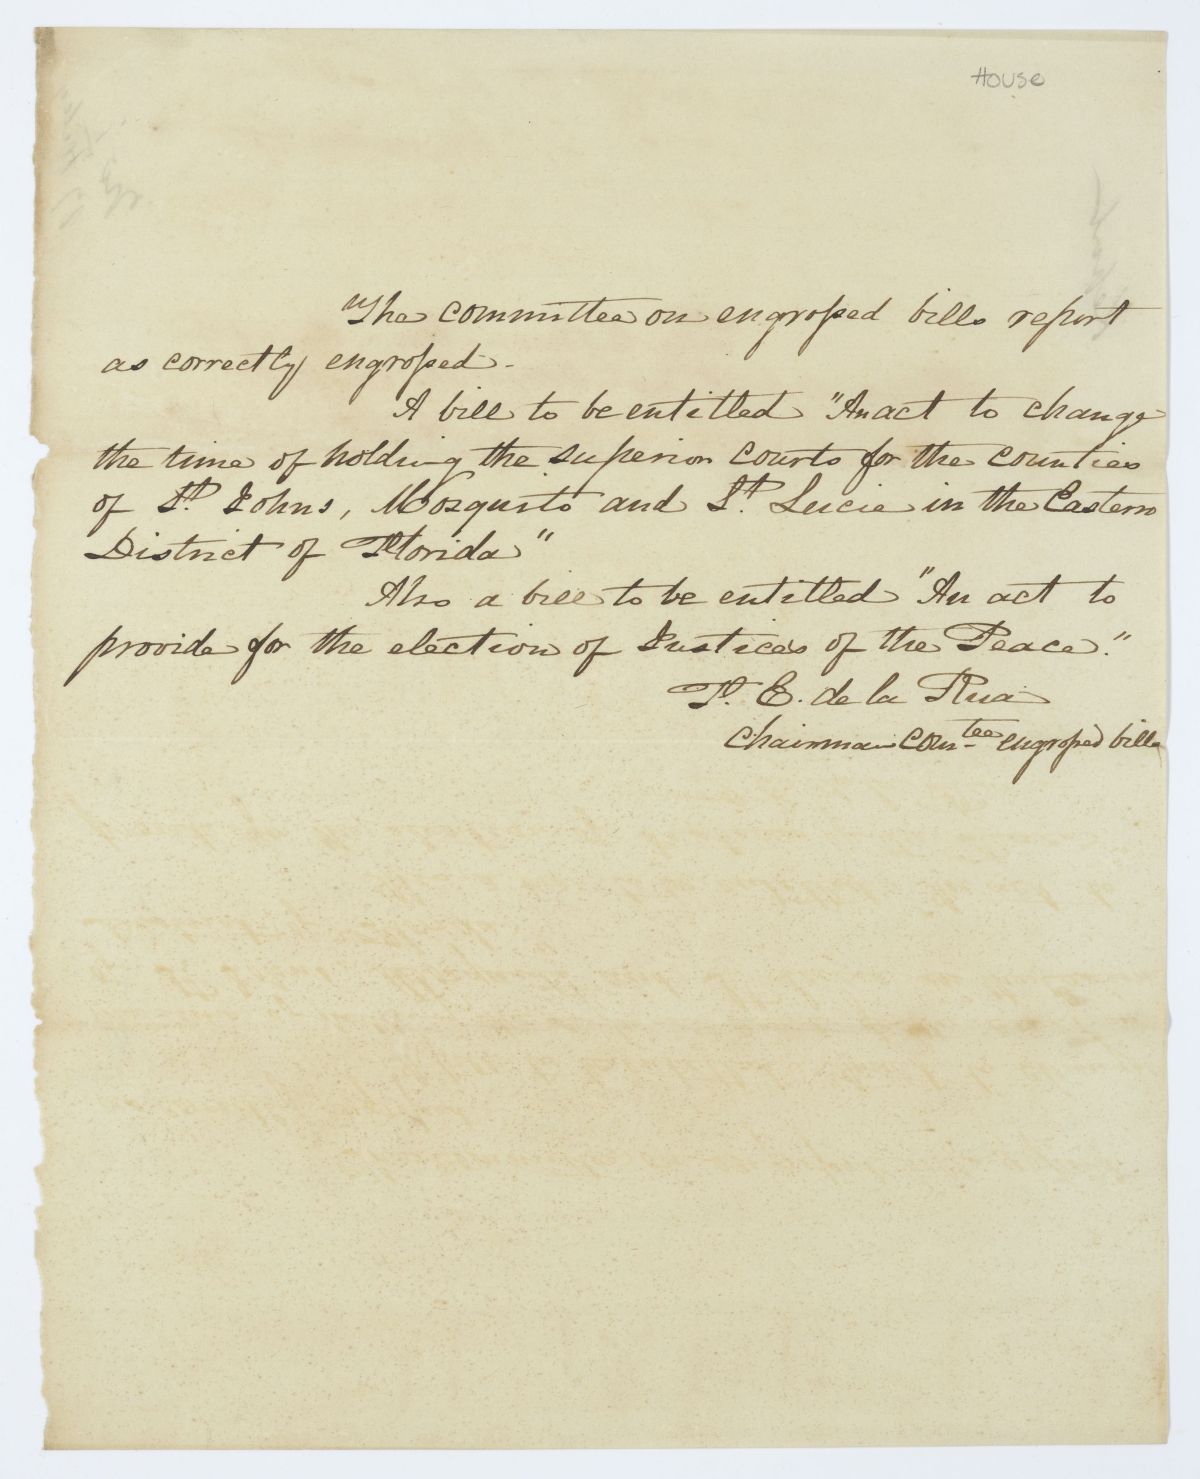 House
The committee on engrossed bills report
as correctly engrossed.
A bill to be entitled "An act to change
the time of holding the superior courts for the counties
of St. Johns, Mosquito and St. Lucie in the Eastern
District of Florida"
Also a bill to be entitled "An act to
provide for the election of Justices of the Peace."
F. E. de la Rua
Chairman Comtee engrossed bills